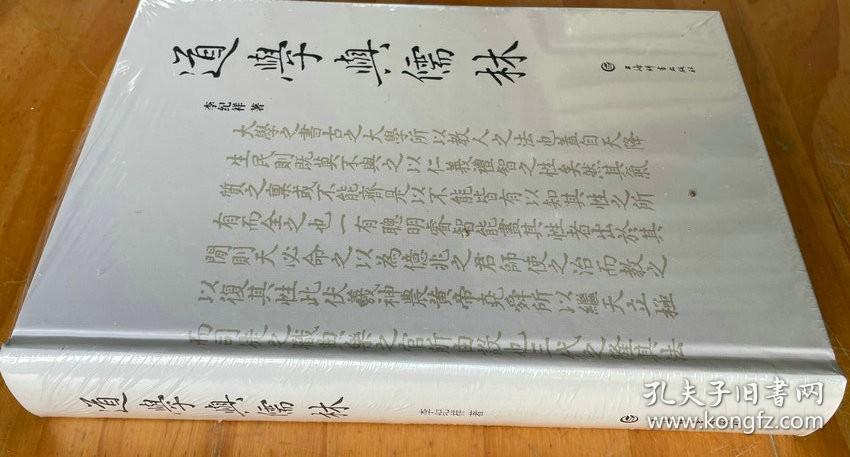 道學與儒林
李纪祥 著
上海辞书出版社
大學之書古之大學所以教人之法也蓋自天降
生民則既莫不與之以仁義禮智之性矣然其氣
質之稟或不能齊是以不能皆有以知其性之所
有而全之也一有聰明睿智能盡其性者出於其
間則天必命之以為億兆之君師使之治而教之
以復其性此伏羲神農黃帝堯舜所以繼天立極
而司徒之職典樂之官所由設也三代之隆其法
道學與儒林
李纪祥 著
孔夫子旧书网
www.kongfz.com